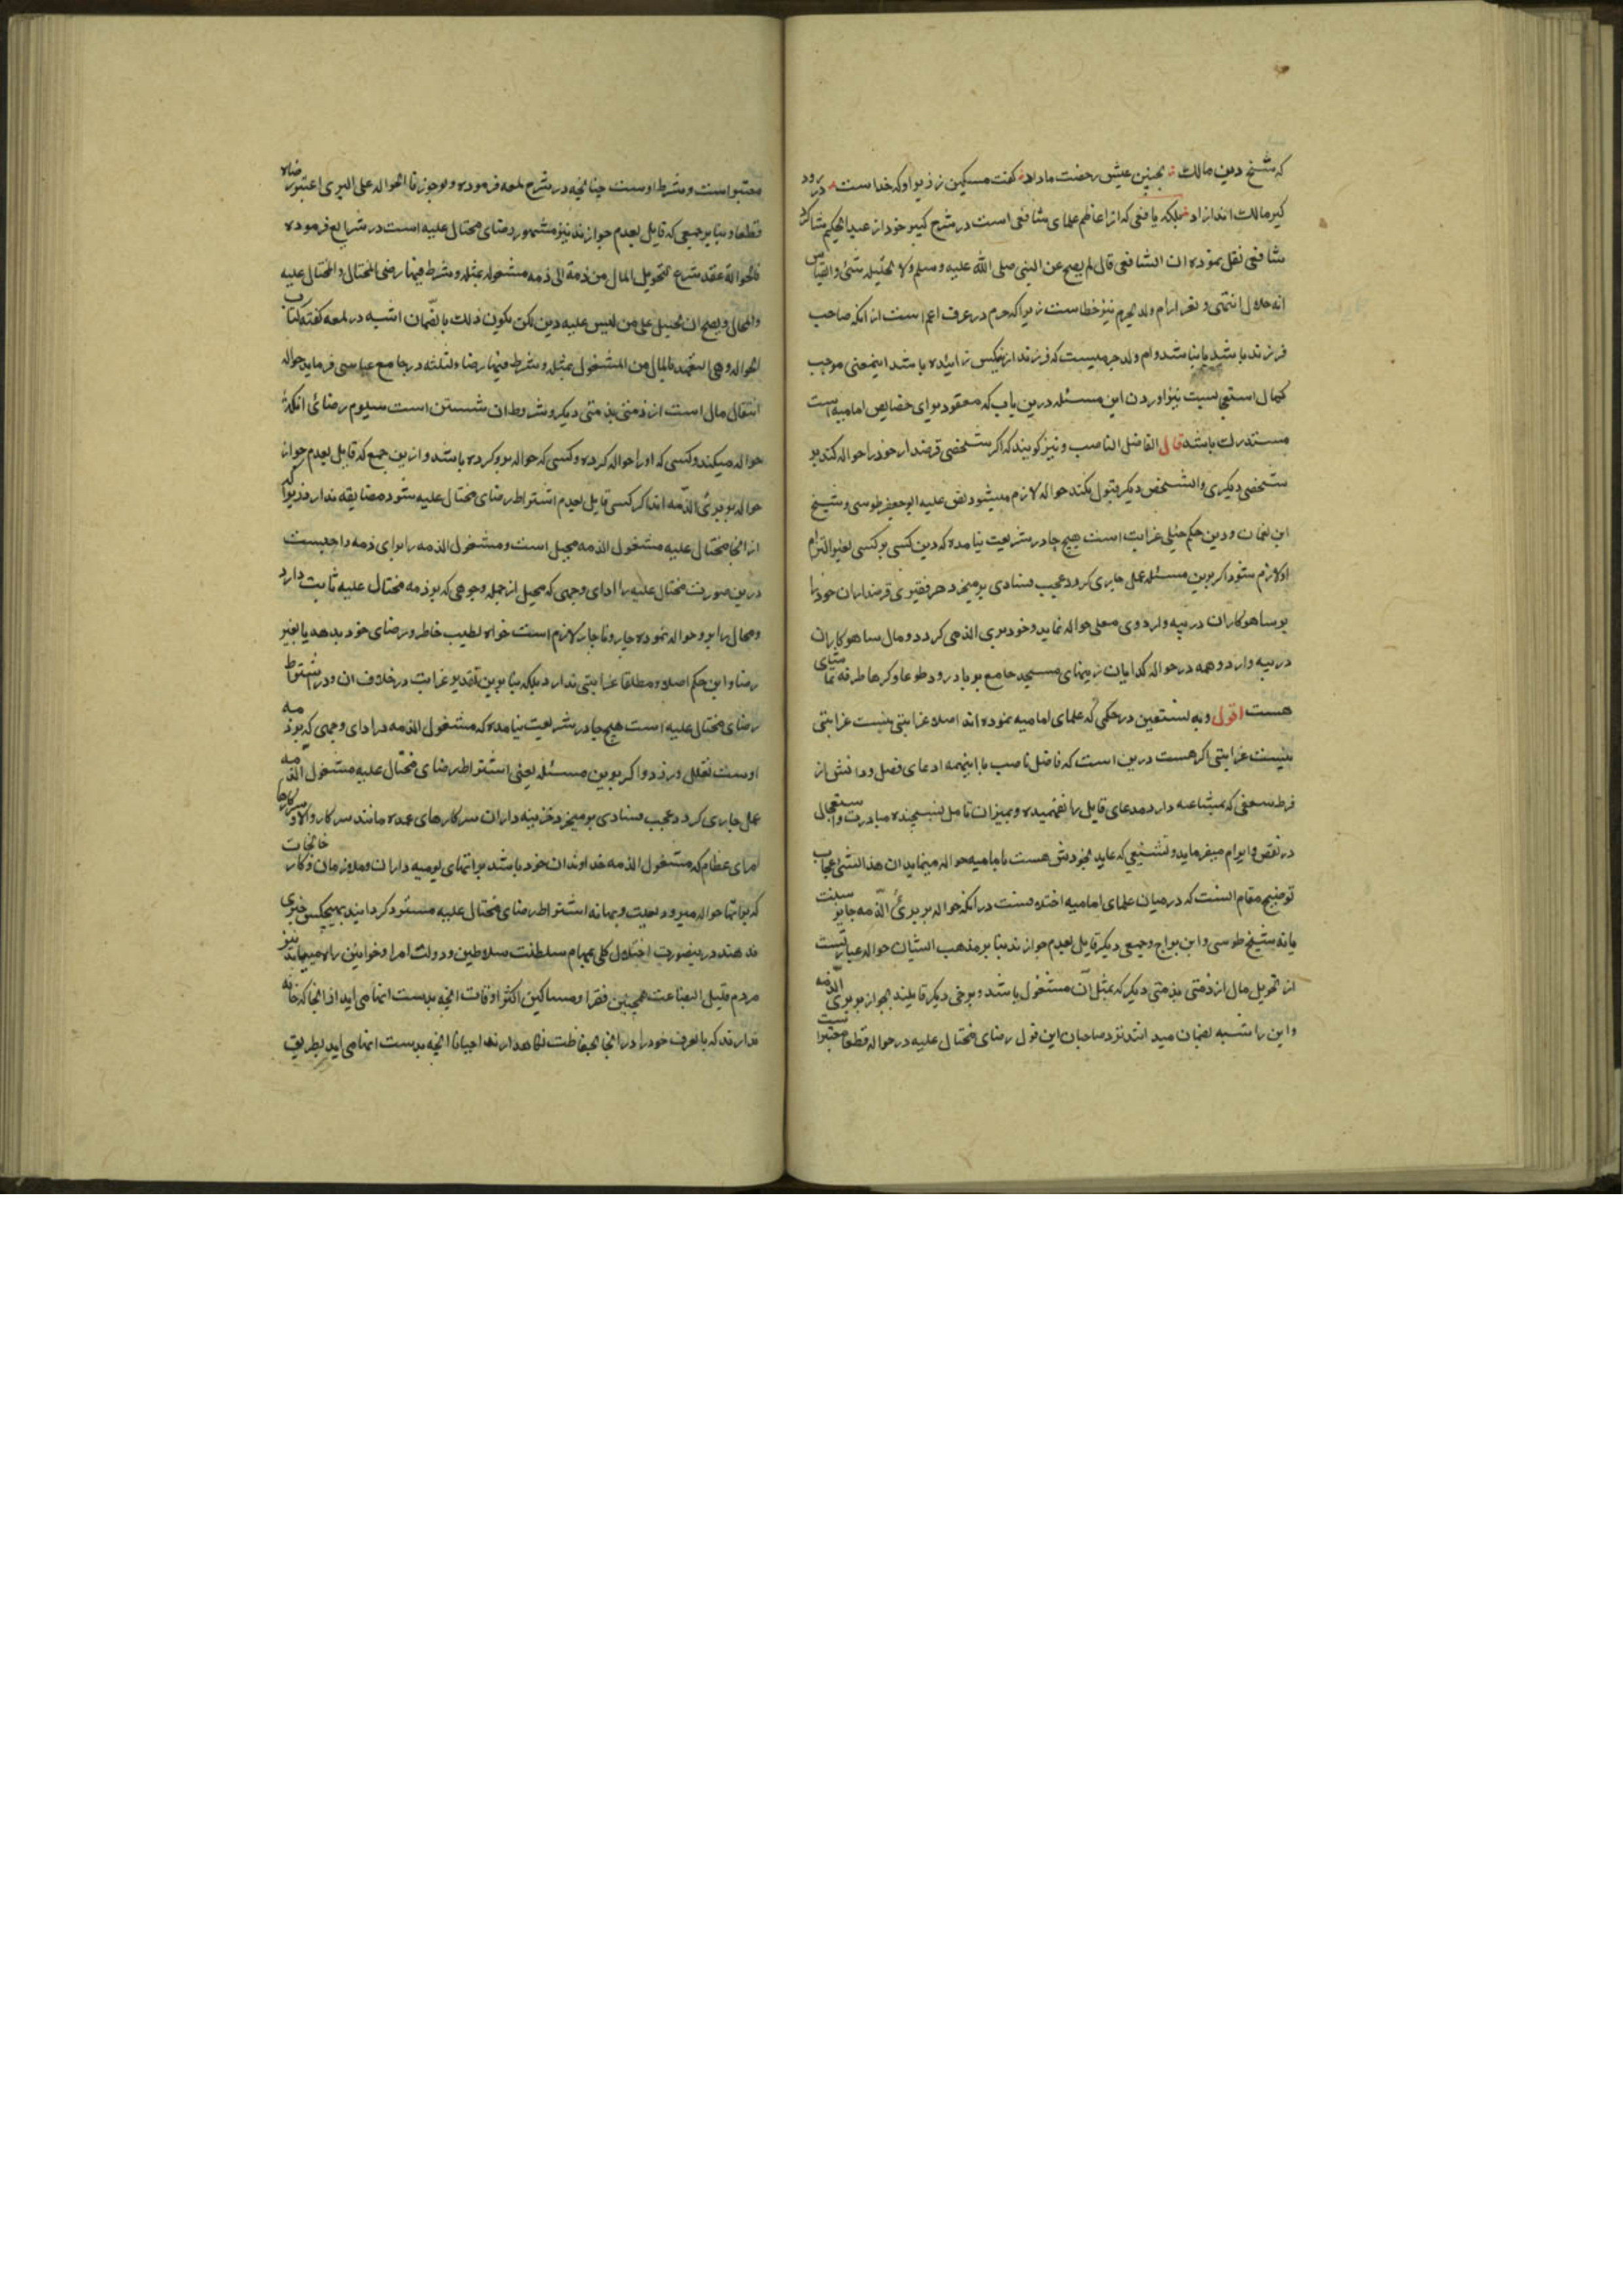 که شیخ دین مالک بچنین عیش رخصت ما داد گفت مسکین زدیر او که خداست در رود
کیر مالک اندازاد بلکه یافعی که از اعاظم علمای شافعی است در شرح کبیر خود از عبد الحکیم شاکرد
شافعی نقل نموده ان الشافعی قال لم یصح عن النبی صلی الله علیه وسلم ولا تحلیله شئ والقیاس
انه حلال انتهی و ام ولد نیز خطاست زیرا که در عرف اعم است از انکه صاحب
فرزند باشد یا نباشد و ام ولد که فرزند از زائیده باشد اینمعنی موجب
کمال نیز اوردن این مسئله درین باب که معقود برای خصایص امامیه است
مستدرک باشد قال الفاضل الناصب و نیز کویند که اکر شخصی قرضدار خود را حواله کند بر
شخصی دیکری وانشخص دیکر قبول نکند حواله لازم میشود نص علیه ابو جعفر طوسی و شیخ
ابن نعمان و دین حکم خیلی غرابت است هیچ جا در شریعت نیامده که دین کسی بر کسی بغیر التزام
او لازم شود اکر برین مسئله عمل جاری کردد عجیب فسادی برمیخیزد هر فقیری قرضداران خود را
بر ساهوکاران دریبه واردوی معلی حواله نماید و خود بری الذمه کردد و مال ساهوکاران
دریبه واردو همه در حواله کدایان زینهای مسجد جامع برباد رود طوعا وکرها طرفه تماشای
هست اقول وبه نستعین در حکمی که علمای امامیه نموده اند اصلا غرابتی نیست غرابتی
نیست غرابتی اکر هست درین است که فاضل ناصب با اینهمه ادعای فضل و دانش از
فرط شعفی که بشاعه دارد مدعای قایل را نفهمیده و بمیزان تامل نسنجیده مبادرت واستعجال
در نقض وابرام میفرماید و تشنیعی که عاید بخودش هست بامامیه حواله مینماید ان هذا لشئ عجاب
توضیح مقام انست که درمیان علمای امامیه اختلافست در انکه حواله بر برئ الذمه جایز است
یا نه شیخ طوسی وابن براج و جمعی دیکر قایل بعدم جوازند بنابر مذهب ایشان حواله عبارتست
از تحویل مال از ذمتی بذمتی دیکر که بمثل آن مشغول باشد و برخی دیکر قایلند بجواز بر برئ الذمه
واین را شبیه بضمان میدانند نزد صاحبان این قول رضای محتال علیه در حواله قطعا معتبر است
معتبر است و شرط اوست چنانچه در شرح لمعه فرموده ولو جوزنا الحواله علی البری اعتبر رضاه
قطعا و بنابر جمعی که قایل بعدم جوازند نیز مشهور رضای محتال علیه است در شرایع فرموده
فالحوالة عقد شرع لتحویل المال من ذمة الی ذمه مشغوله بمثله و شرط فیها رضی المحیل والمحتال علیه
والمحتال و یصح ان یحیل علی من لیس علیه دین لکن یکون ذلک بالضمان اشبه در لمعه کفته کتاب
الحواله وهی التعهد بالمال من المشغول بمثله و شرط فیها رضاء الثلثه در جامع عباسی فرماید حواله
انتقال مال است از ذمتی بذمتی دیکر و شروط ان شش است سیوم رضائ انکه
حواله میکند و کسی که او را حواله کرده و کسی که حواله برو کرده باشد وازین جمع که قایل بعدم جواز
حواله بر برئ الذمه اند اکر کسی قایل بعدم اشتراط رضای محتال علیه شود مضایقه ندارد زیرا که
از انجا محتال علیه مشغول الذمه محیل است و مشغول الذمه را برای ذمه واجبست
درین صورت محتال علیه را ادای وجهی که محیل از جمله وجوهی که بر ذمه محتال علیه ثابت دارد
و محال را برو حواله نموده چار و ناچار لازم است خواه بطیب خاطر و رضای خود بدهد یا بغیر
رضا واین حکم اصلا و مطلقا غرابتی ندارد بلکه بنابرین تقدیر غرابت در خلاف ان و در اشتراط
رضای محتال علیه است هیچ جا در شریعت نیامده که مشغول الذمه در ادای وجهی که بر ذمه
اوست تعلل ورزد و اکر برین مسئله یعنی اشتراط رضای محتال علیه مشغول الذمه
عمل جاری کردد عجب فسادی برمیخیزد خزینه داران سرکارهای عمده مانند سرکار والا و سرکارها
امرای عظام که مشغول الذمه خداوندان خود باشند براتهای یومیه داران و ملازمان و کارخانجات
که براتها حواله میرود بعلت و بهانه اشتراط رضای محتال علیه مسترد کردانیده بهیچکس چیزی
ندهند درینصورت اختلال کلی بمهام سلطنت سلاطین و دولت امرا و خوانین راه مییابد نیز
مردم قلیل البضاعت همچنین فقرا و مساکین اکثر اوقات انچه بدست انها می اید از انجا که خانه
ندارند که بالعرف خود را در انجا بحفاظت نکاهدارند احیانا انچه بدست انها می اید بطریق